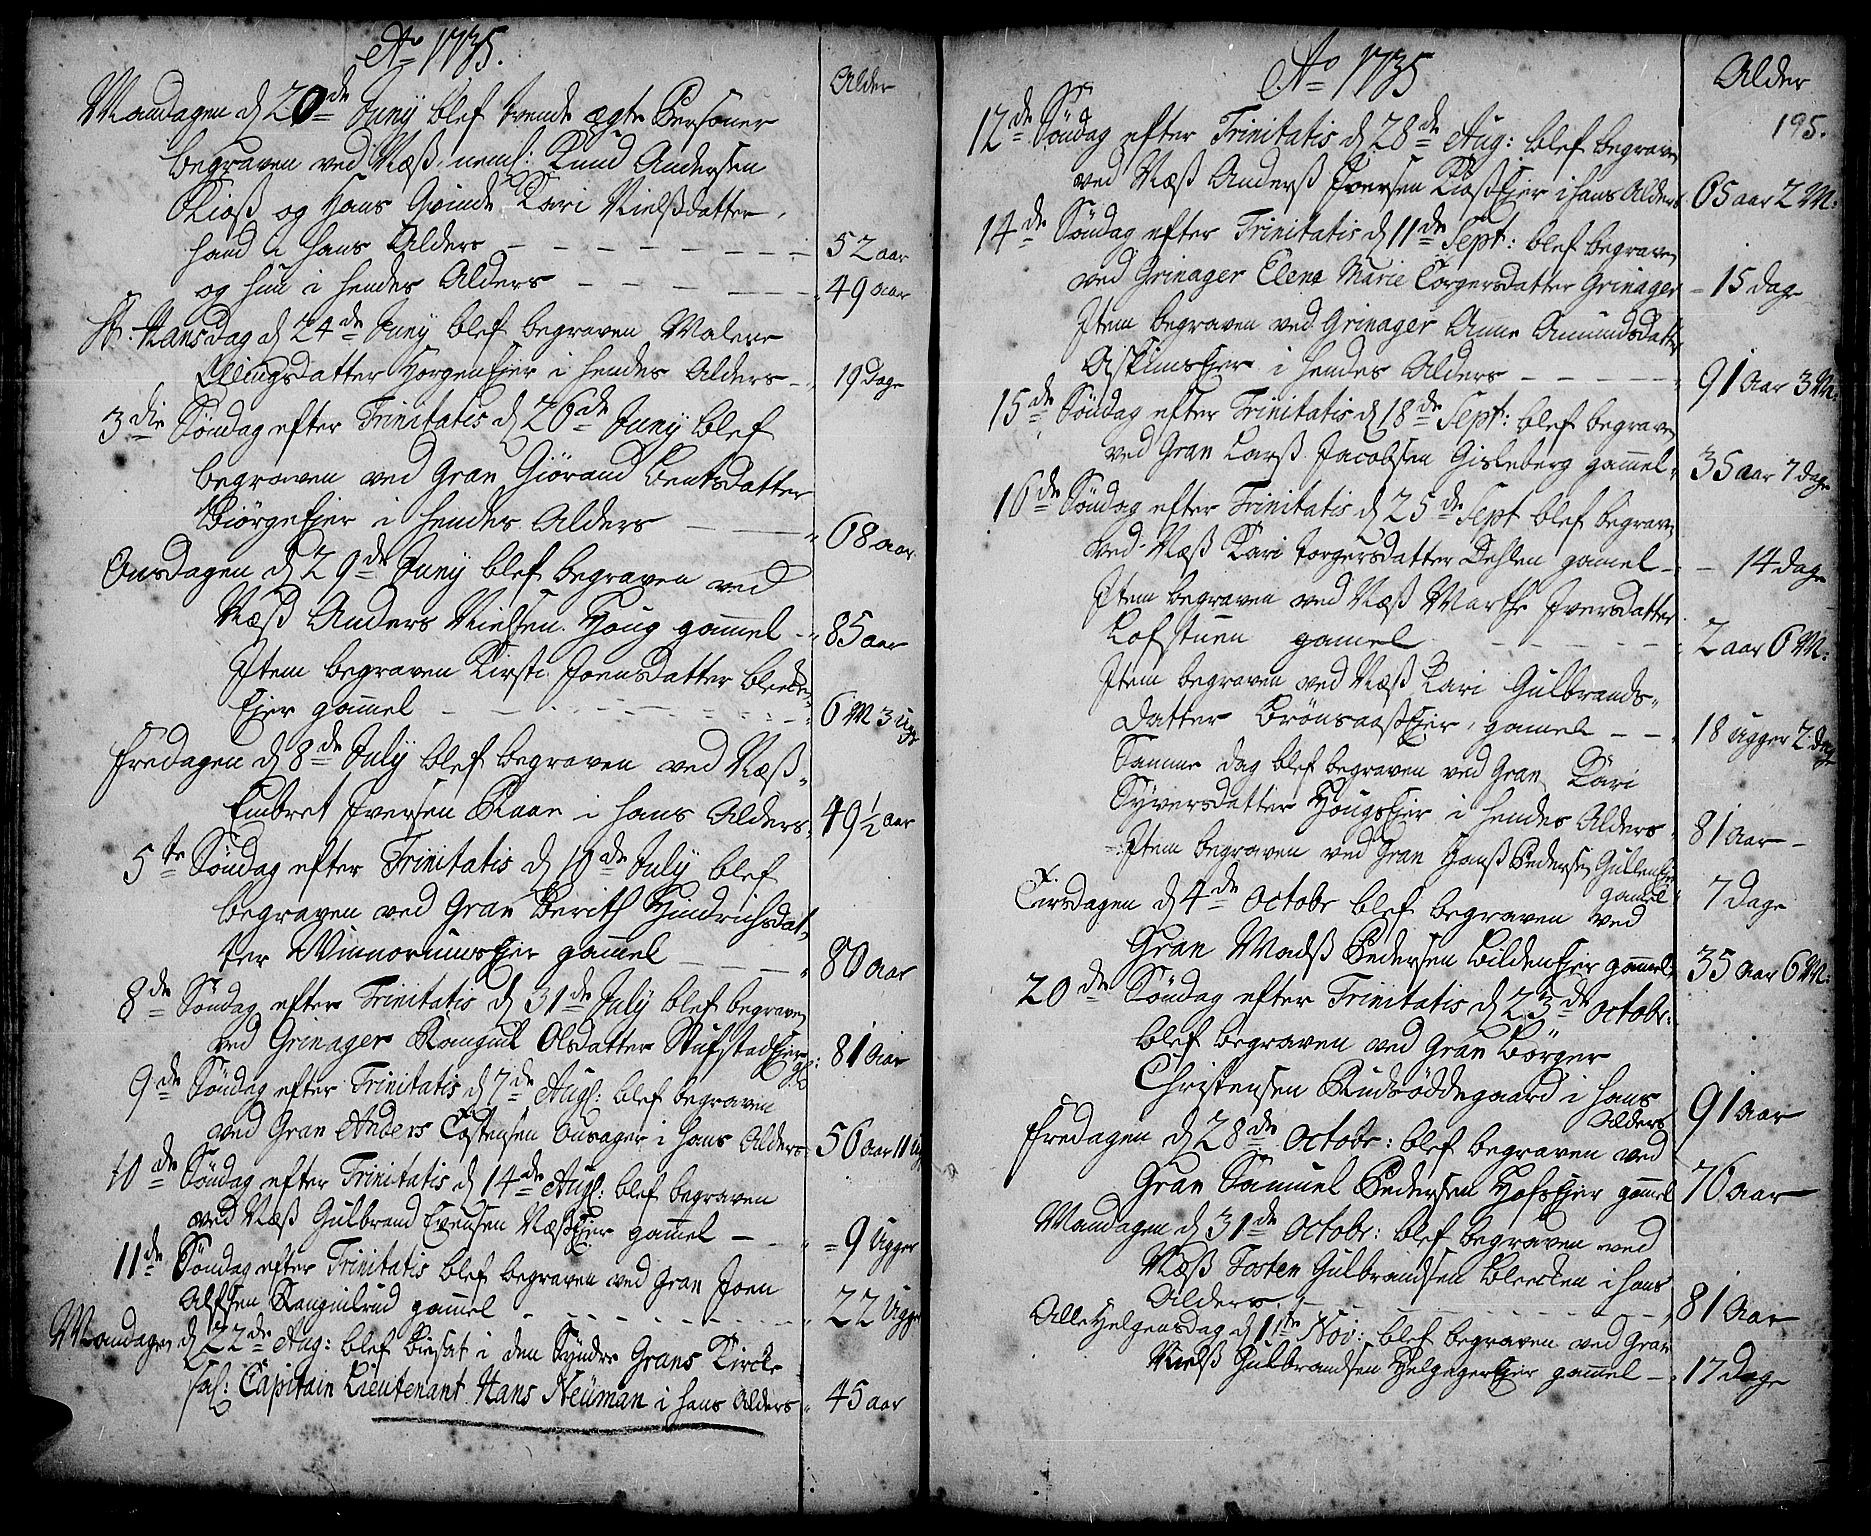 Ao 1735.
Alder
Mandagen d 20de Juny blef tvende ægte Personer
begraven ved Næss. neml: Knud Andersen
Kioss og Hans Qvinde Kari Nielssdatter,
hand i hans Alders 52 aar
og hun i hendes Alders 49 aar
St. Hansdag d 24de Juny blef begraven Malene
Ellingsdatter HorgenEjer i hendes Alders 19 dage
3die Søndag efter Trinitatis d 26de Juny blef
begraven ved Gran Giørand Bentsdatter
BiørgeEjer i hendes Alders 68 aar
Onsdagen d 29de Juny blef begraven ved
Næss Anders Nielsen Houg gammel 85 aar
Item begraven Kirsti Joensdatter Bleken
Ejer gammel 6 M 3 Ugr
Fredagen d 8de July blef begraven ved Næss
Embret Iversen Raan i hans Alders 49 1/2 aar
5te Søndag efter Trinitatis d 10de July blef
begraven ved Gran Berith Hindrichsdat
ter Ejer gammel 80 aar
8de Søndag efter Trinitatis d 31de July blef begraven
ved Grinager Rangnil Olsdatter StufstadEjer gl: 81 Aar
9de Søndag efter Trinitatis d 7de Augs: blef begraven
ved Gran Anders Tostensen Onsager i hans Alders 56 aar 11 Ug
10de Søndag efter Trinitatis d 14de Augs: blef begraven
ved Næss Gulbrand Evensen NæssEjer gammel 9 Ugger
11de Søndag efter Trinitatis blef begraven ved Gran Joen
Alfsen Rangnilrud gammel 22 Ugger
Mandagen d 22de Aug: blef Bisat i den Syndre Grans Kircke
sal: Capitain Lieutenant Hans Neuman i hans Alders 45 aar
Ao 1735
Alder
195.
12de Søndag efter Trinitatis d 28de Aug: blef begraven
ved Næss Anderss Iversen KiossEjer i hans Alders 65 aar 2 M:
14de Søndag efter Trinitatis d 11de Sept: blef begraven
ved Grinager Elene Marie Torgersdatter Grinager 15 dage
Item begraven ved Grinager Anne Amundsdatter
AskimsEjer i hendes Alders 91 Aar 3 M:
15de Søndag efter Trinitatis d 18de Sept: blef begraven
ved Gran Larss Jacobsen Gisleberg gammel 35 aar 7 dage
16de Søndag efter Trinitatis d 25de Sept blef begraven
ved Næss Kari Torgersdatter Dehlen gamel 14 dage
Item begraven ved Næss Marthe Iversdatter
Lofstuen gamel 2 aar 6 M:
Item begraven ved Næss Kari Gulbrands-
datter BrønsaassEjer, gamel 18 Ugger 2 dage
Samme dag blef begraven ved Gran Kari
Syversdatter HougsEjer i hendes Alders 81 Aar
Item begraven ved Gran Hanss Pedersen GullenEjer
gamel 7 dage
Tirsdagen d 4de Octobr blef begraven ved
Gran Madss Pedersen BildenEjer gammel 35 aar 6 M:
20de Søndag efter Trinitatis d 23de Octobr:
blef begraven ved Gran Børger
Christensen Rudsøddegaard i hans
Alders 91 Aar
Fredagen d 28de Octobr: blef begraven ved
Gran Samuel Pedersen HofsEjer gamel 76 aar
Mandagen d 31de Octobr: blef begraven ved
Næss Tosten Gulbrandsen Bleeken i hans
Alders 81 Aar
Alle Helgensdag d 1ste Nov: blef begraven ved Gran
Nielss Gulbrandsen HelgagerEjer gammel 17 Dage